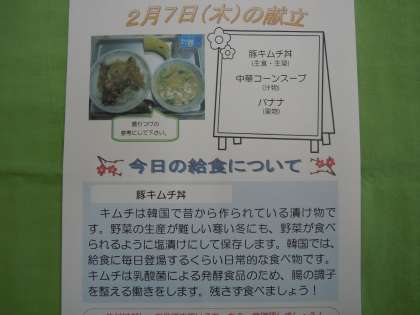 2月7日(木)の献立
豚キムチ丼
(主食・主菜)
中華コーンスープ
(汁物)
バナナ
(果物)
盛りつけの
参考にして下さい。
今日の給食について
豚キムチ丼
キムチは韓国で昔から作られている漬け物で
す。野菜の生産が難しい寒い冬にも、野菜が食べ
られるように塩漬けにして保存します。韓国では、
給食に毎日登場するくらい日常的な食べ物です。
キムチは乳酸菌による発酵食品のため、腸の調子
を整える働きをします。残さず食べましょう!